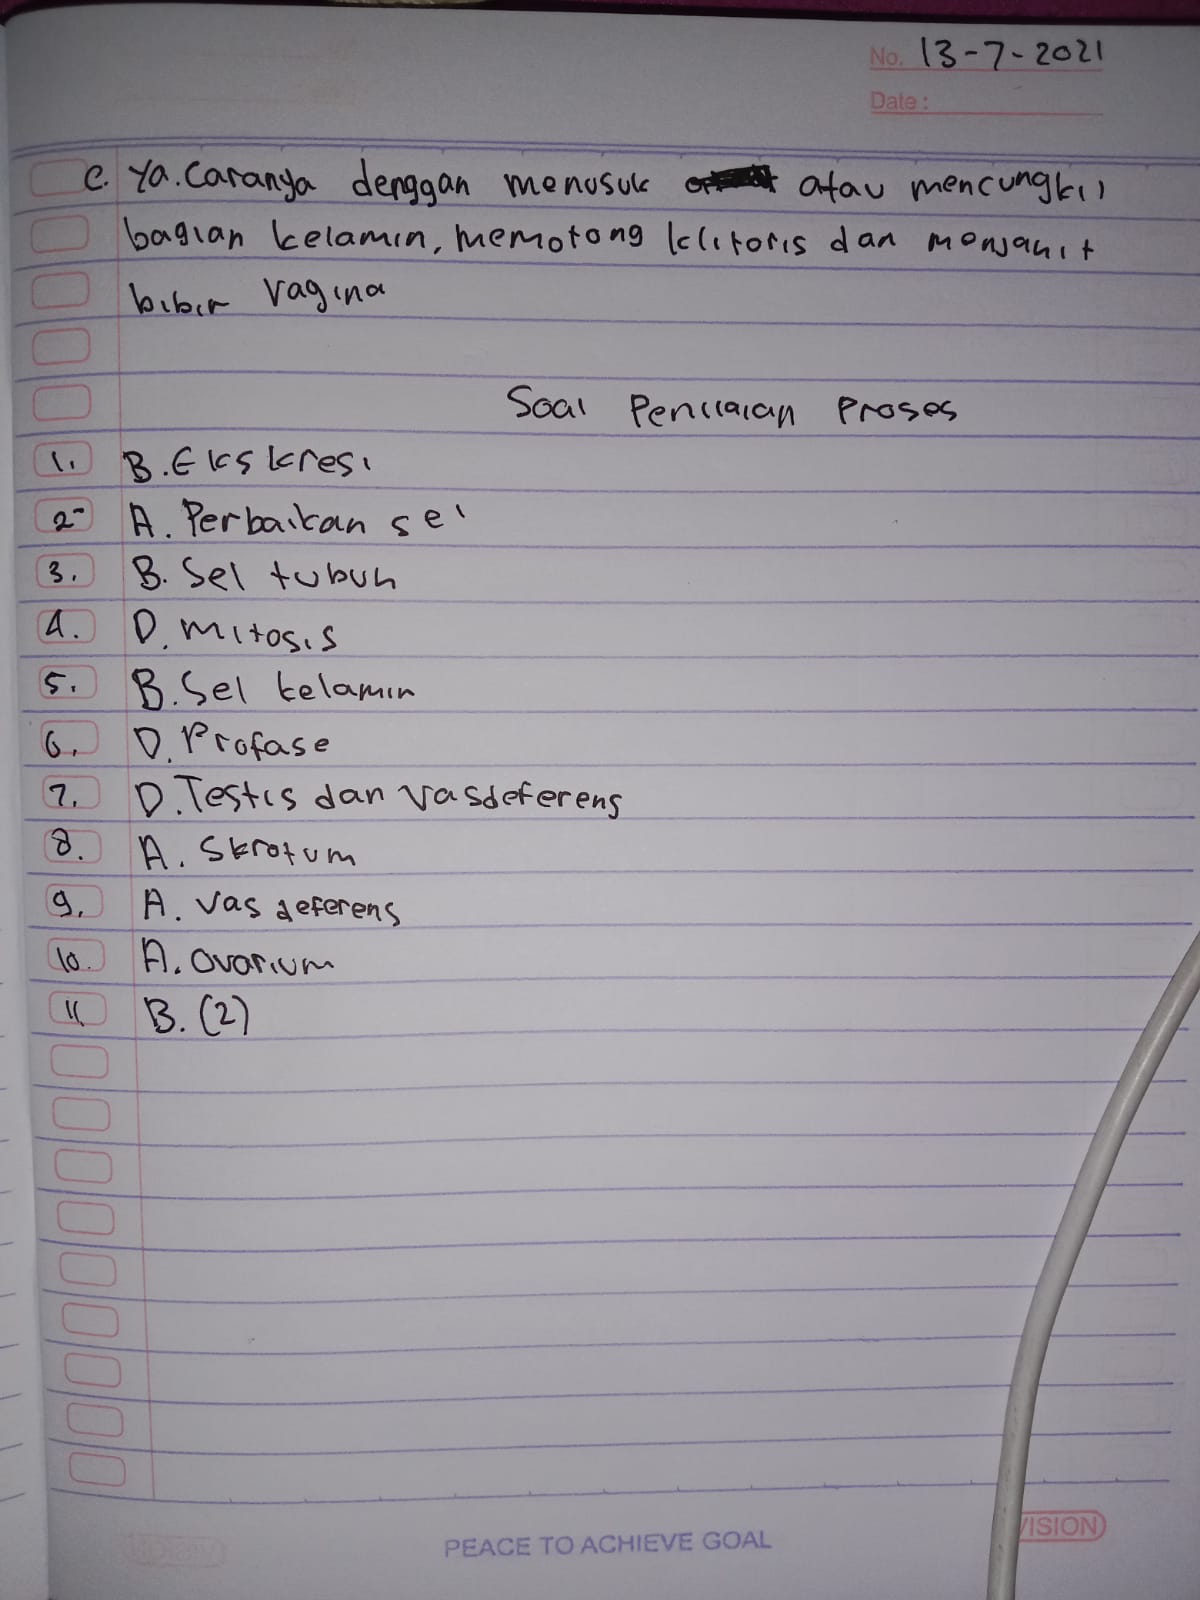 No. 13-7-2021
Date :
c. Ya. Caranya denggan menusuk atau mencungkil
bagian kelamin, memotong klitoris dan menjahit
bibir vagina
Soal Penilaian Proses
1. B. Ekskresi
2- A. Perbaikan sel
3. B. Sel tubuh
4. D. Mitosis
5. B. Sel kelamin
6. D. Profase
7. D. Testis dan vasdeferens
8. A. Skrotum
9. A. Vas deferens
10. A. Ovarium
11 B. (2)
PEACE TO ACHIEVE GOAL
VISION